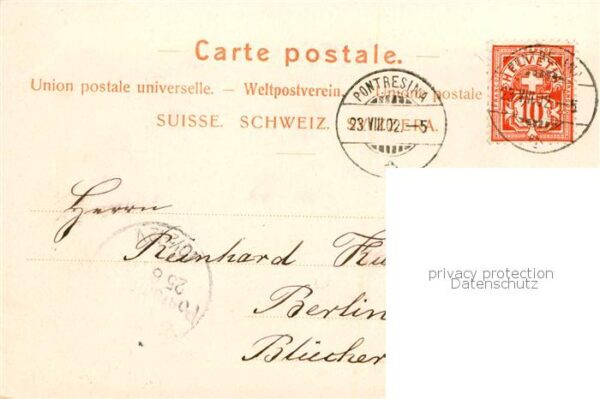 Carte postale.
Union postale universelle. — Weltpostverein. — Unione postale
SUISSE. SCHWEIZ. SVIZZERA.
PONTRESINA
23.VIII.02.–5
HELVETIA
10
23.VIII.02.–5
Herrn
Reinhard
Berlin
Blücher
25 8
privacy protection
Datenschutz